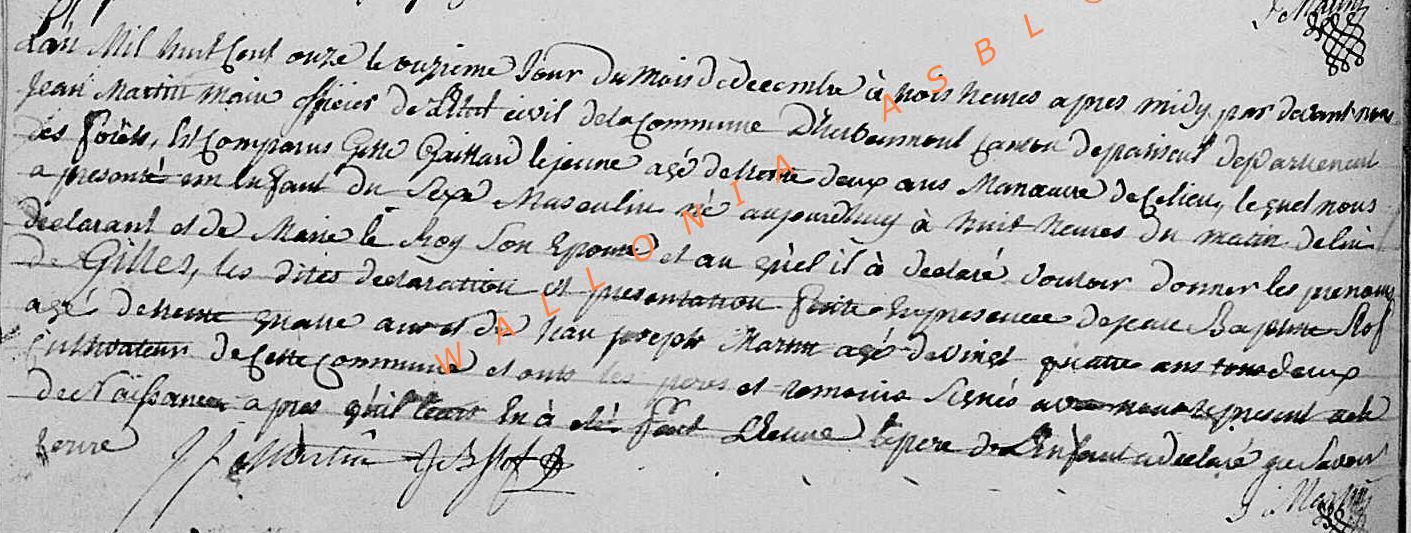 J Martin
L'an Mil huit Cent onze le onzieme Jour du mois de decembre à trois heures apres midy par devant nous
Jean Martin maire officier de L'Etat civil de la Commune D'herbeumont Canton de paliseul departement
des forêts, Est Comparus Gille Gaillard le jeune agé de trente deux ans Manœuvre de Ce lieu, lequel nous
a presenté un Enfant du Sexe Masculin né aujourdhuy à huit heures du matin de lui
declarant et de Marie le Roy Son Epouse et au quel il à declaré vouloir donner les prenoms
de Gilles, les dites declaration et presentation faite En presence de jean Baptiste
agé de trente quatre ans et de jean joseph Martin agé de vingt quatre ans tous deux
Cultivateur de Cette Commune et onts les peres et temoins Signés avec nous le present acte
de Naissance apres qu'il leurs En à été fait Lecture le pere de L'Enfant a declaré ne Savoir
J J Martin
J Martin
WALLONIA ASBL